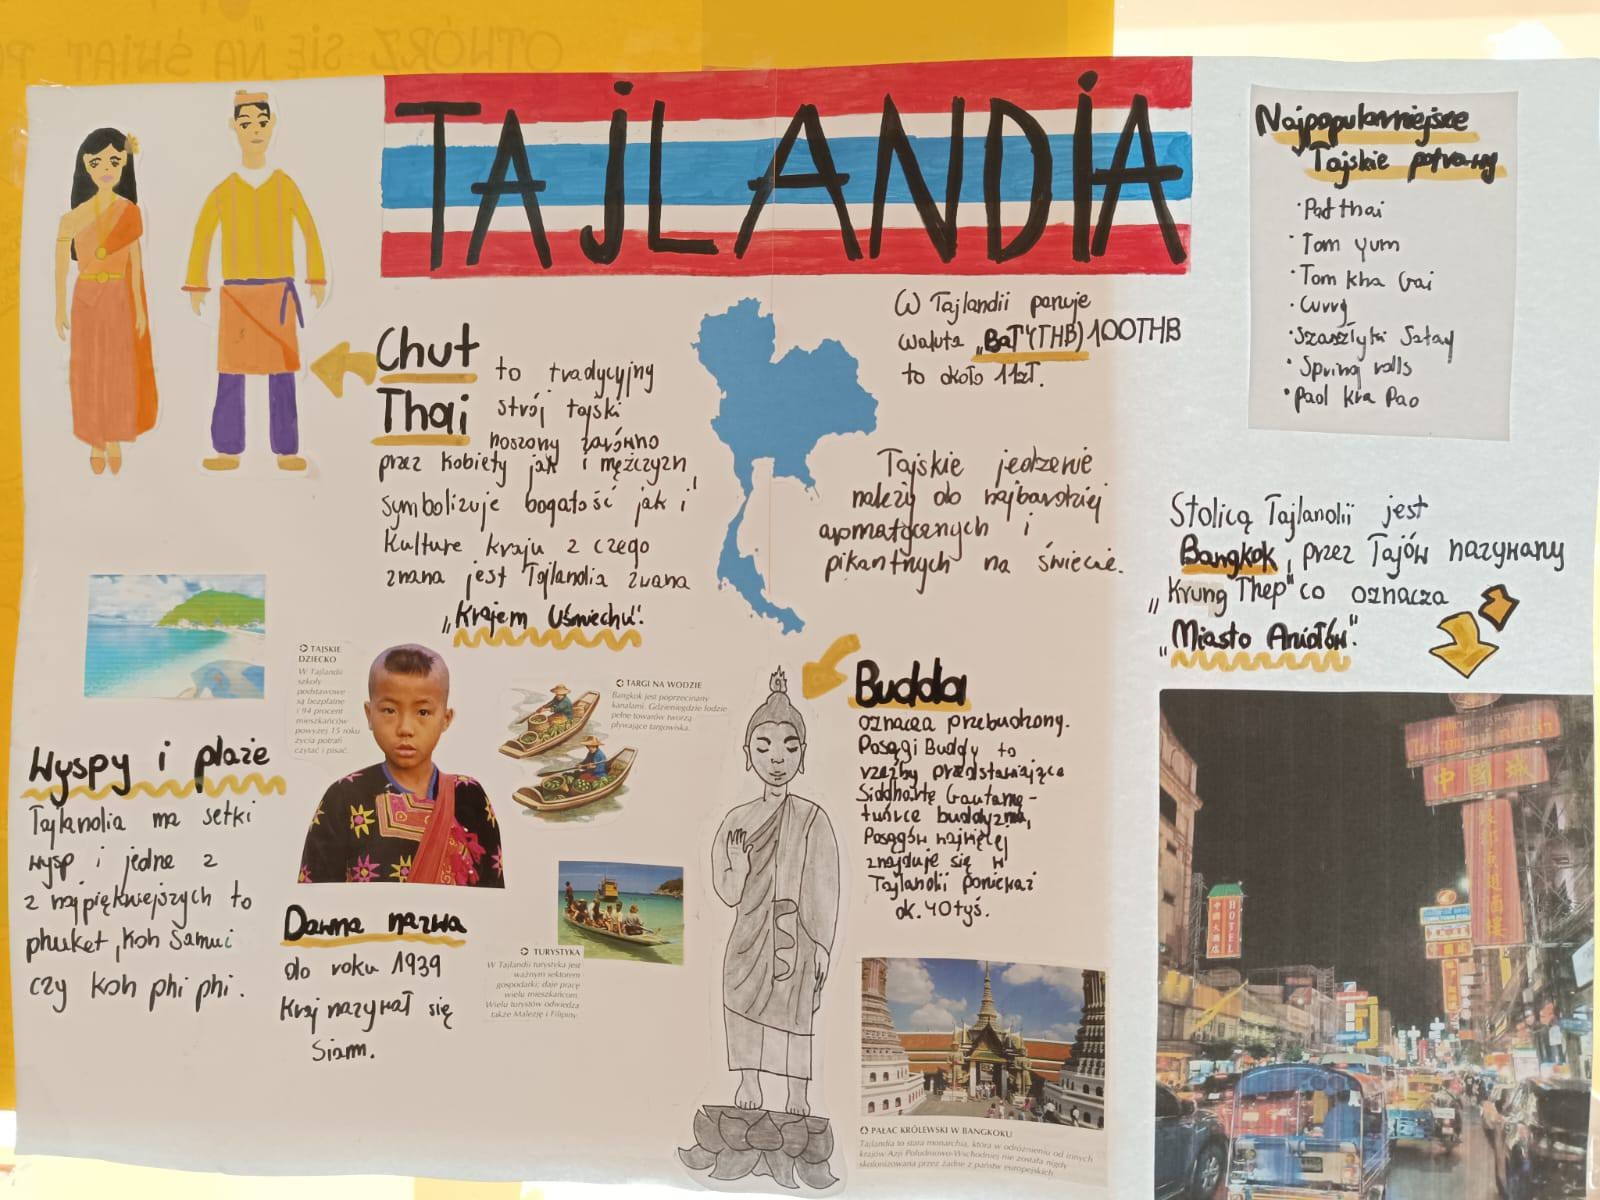 OTWÓRZ SIĘ NA ŚWIAT
TAJLANDIA
Najpopularniejsze
Tajskie potrawy
·Pat thai
·Tom yum
·Tom kha Gai
·Curry
·Szaszłyki Satay
·Spring rolls
·Pad kra Pao
W Tajlandii panuje
waluta „BaT"(THB) 100THB
to około 11zł.
Chut
Thai
to tradycyjny
strój tajski
noszony zarówno
przez kobiety jak i mężczyzn
symbolizuje bogatość jak i
Kulturę kraju z czego
znana jest Tajlandia zwana
„Krajem Uśmiechu".
Tajskie jedzenie
należy do najbardziej
aromatycznych i
pikantnych na świecie.
Stolicą Tajlandii jest
Bangkok, przez Tajów nazywany
„Krung Thep" co oznacza
„Miasto Aniołów".
TAJSKIE
DZIECKO
W Tajlandii
szkoły
podstawowe
są bezpłatne
i 94 procent
mieszkańców
powyżej 15 roku
życia potrafi
czytać i pisać.
TARGI NA WODZIE
Bangkok jest poprzecinany
kanałami. Gdzieniegdzie łodzie
pełne towarów tworzą
pływające targowiska.
Budda
oznacza przebudzony.
Posągi Buddy to
rzeźby przedstawiające
Siddhartę Gautamę-
twórcę buddyzmu,
Posągów najwięcej
znajduje się w
Tajlandii ponieważ
ok. 40tyś.
Wyspy i plaże
Tajlandia ma setki
wysp i jedne z
z najpiękniejszych to
phuket, Koh Samui
czy Koh phi phi.
Dawna nazwa
do roku 1939
Kraj nazywał się
Siam.
TURYSTYKA
W Tajlandii turystyka jest
ważnym sektorem
gospodarki; daje pracę
wielu mieszkańcom.
Wielu turystów odwiedza
także Malezję i Filipiny.
PAŁAC KRÓLEWSKI W BANGKOKU
Tajlandia to stara monarchia, która w odróżnieniu od innych
krajów Azji Południowo-Wschodniej nie została nigdy
skolonizowana przez żadne z państw europejskich.
中國城
中國大酒店
HOTEL